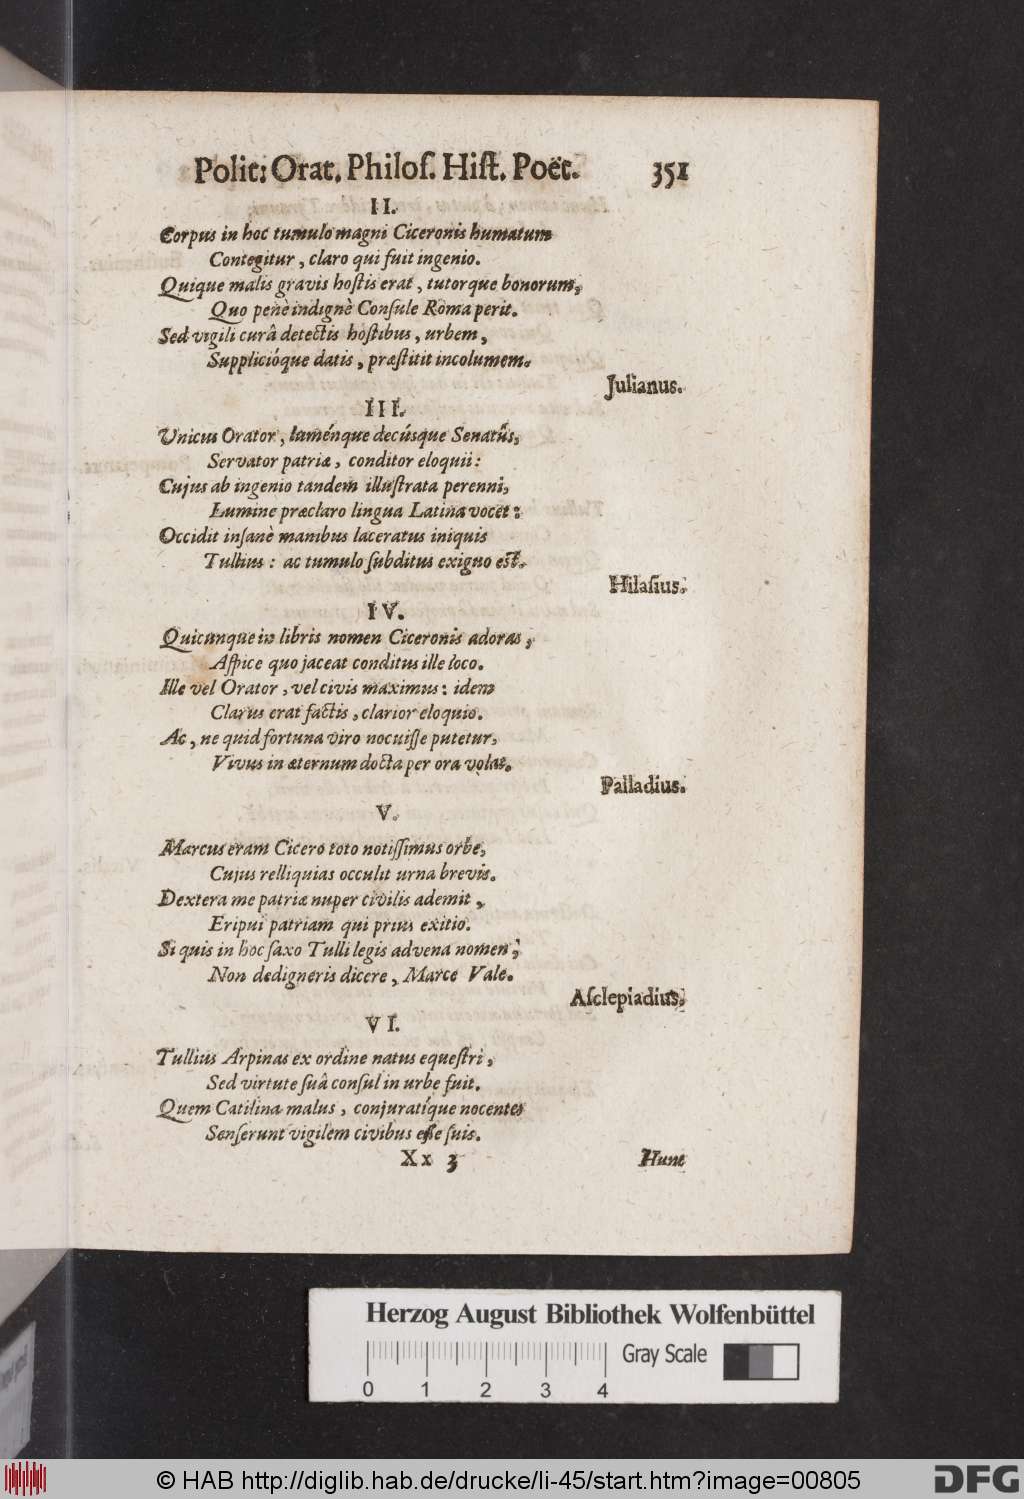 Polit: Orat. Philoſ. Hiſt. Poët. 351
II.
Corpus in hoc tumulo magni Ciceronis humatum
Contegitur, claro qui fuit ingenio.
Quique malis gravis hoſtis erat, tutorque bonorum,
Quo penè indignè Conſule Roma perit.
Sed vigili curâ detectis hoſtibus, urbem,
Supplicióque datis, præſtitit incolumem.
Julianus.
III.
Unicus Orator, luménque decúsque Senatûs,
Servator patriæ, conditor eloquii:
Cujus ab ingenio tandem illuſtrata perenni,
Lumine præclaro lingua Latina vocet:
Occidit inſanè manibus laceratus iniquis
Tullius: ac tumulo ſubditus exiguo eſt.
Hilaſius.
IV.
Quicunque in libris nomen Ciceronis adoras,
Aſpice quo jaceat conditus ille loco.
Ille vel Orator, vel civis maximus: idem
Clarus erat factis, clarior eloquio.
Ac, ne quid fortuna viro nocuiſſe putetur,
Vivus in æternum docta per ora volat.
Palladius.
V.
Marcus eram Cicero toto notiſſimus orbe,
Cujus relliquias occulit urna brevis.
Dextera me patriæ nuper civilis ademit,
Eripui patriam qui prius exitio.
Si quis in hoc ſaxo Tulli legis advena nomen,
Non dedigneris dicere, Marce Vale.
Aſclepiadius.
VI.
Tullius Arpinas ex ordine natus equeſtri,
Sed virtute ſuâ conſul in urbe fuit.
Quem Catilina malus, conjuratíque nocentes
Senſerunt vigilem civibus eſſe ſuis.
Xx 3 Hunc
Herzog August Bibliothek Wolfenbüttel
Gray Scale
0 1 2 3 4
© HAB http://diglib.hab.de/drucke/li-45/start.htm?image=00805
DFG